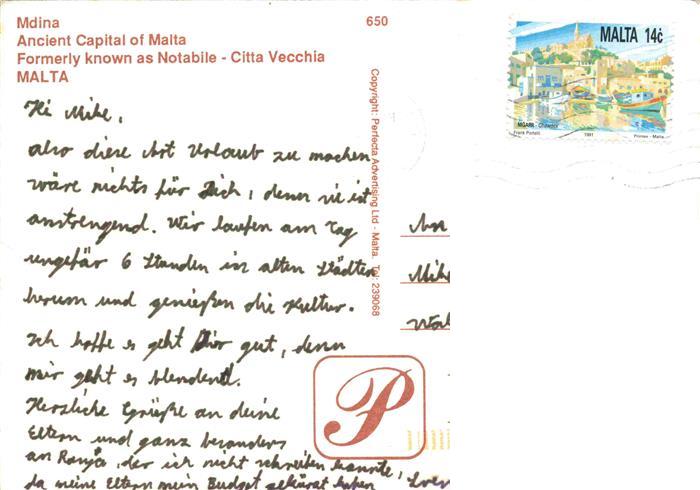 Mdina
Ancient Capital of Malta
Formerly known as Notabile - Citta Vecchia
MALTA
650
Copyright: Perfecta Advertising Ltd - Malta. Tel: 239068
MALTA 14c
MGARR - Ghawdex
Frank Portelli 1991 Printex - Malta.
Hi Mike,
also diese Art Urlaub zu machen
wäre nichts für Dich, denn sie ist
anstrengend. Wir laufen am Tag
ungefär 6 Stunden in alten Städten
herum und genießen die Kultur.
Ich hoffe es geht Dir gut, denn
mir geht es blendend.
Herzliche Grüße an deine
Eltern und ganz besonders
an Ranja, der ich nicht schreiben konnte,
da meine Eltern mein Budget gekürzt haben
Sven
An
Mike
P